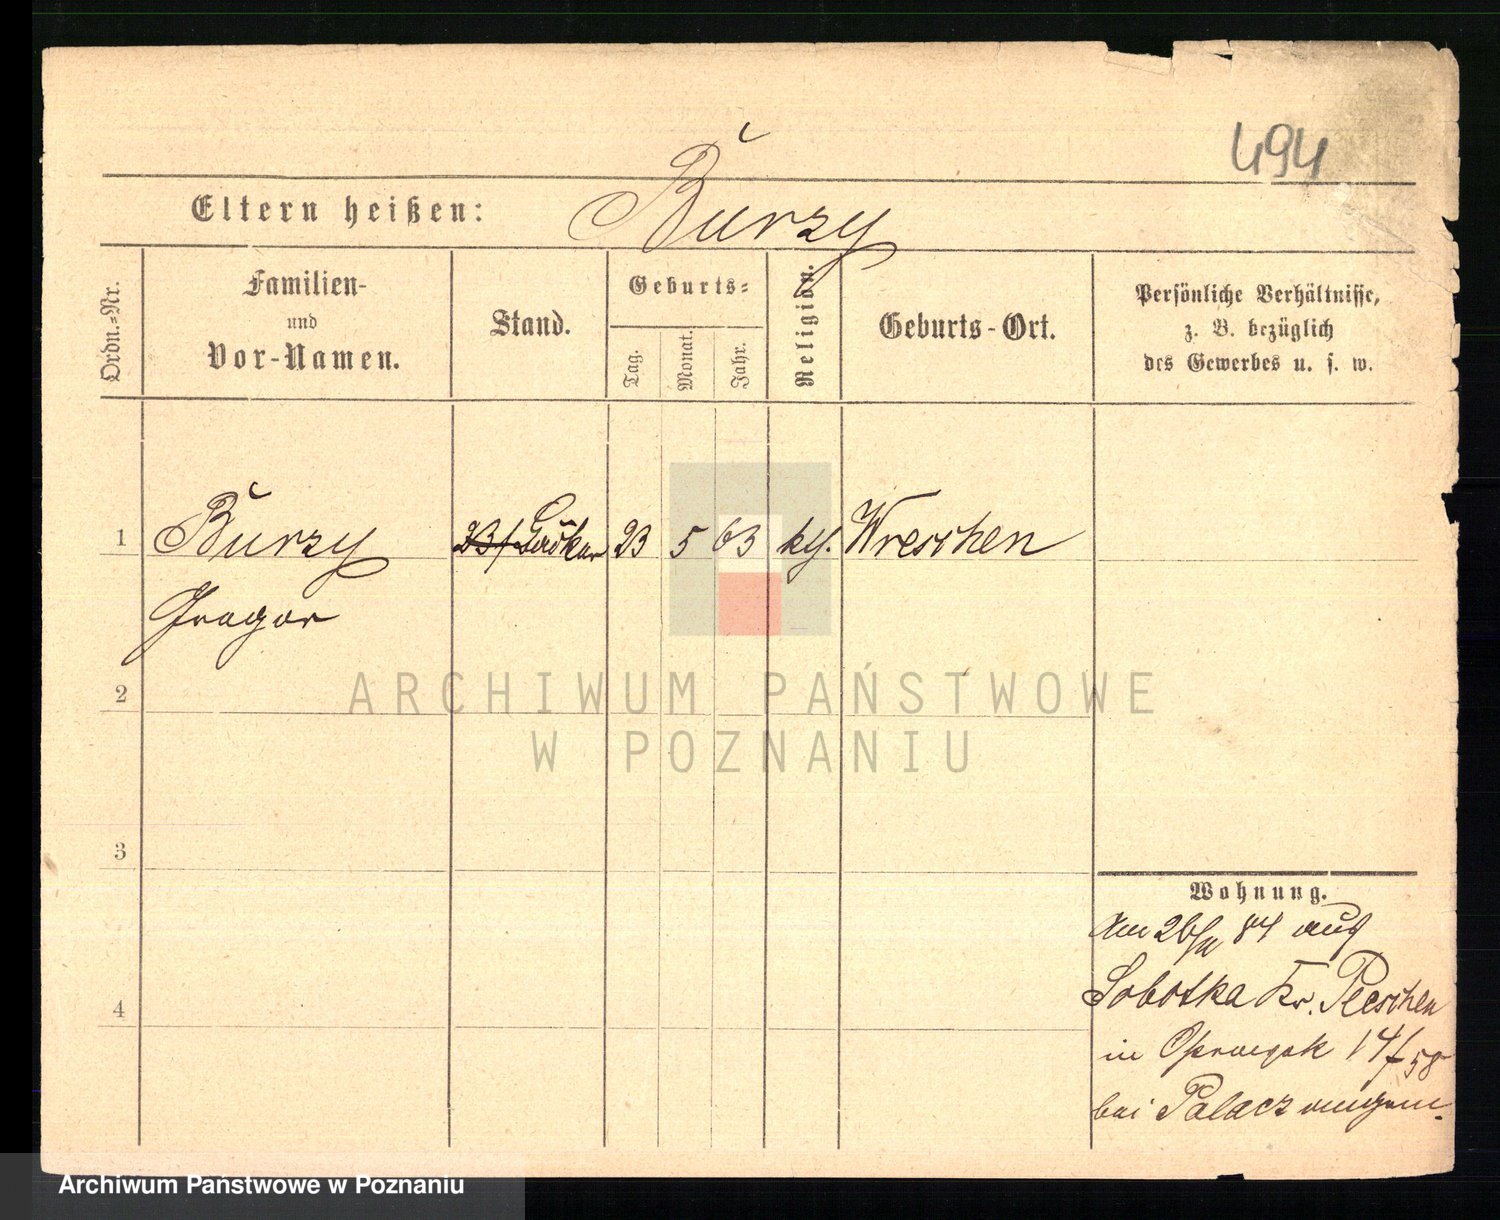 494
Eltern heißen: Burzy
Ordn.-Nr.
Familien-
und
Vor-Namen.
Stand.
Geburts-
Tag.
Monat.
Jahr.
Religion.
Geburts-Ort.
Persönliche Verhältnisse,
z. B. bezüglich
des Gewerbes u. s. w.
1 Burzy 23 5 63 Wreschen
Gregor
2
ARCHIWUM PAŃSTWOWE
W POZNANIU
3
4
Wohnung.
Am 84 aus
Sobotka Kr. Pleschen
in 14/58
bei Palacz
Archiwum Państwowe w Poznaniu